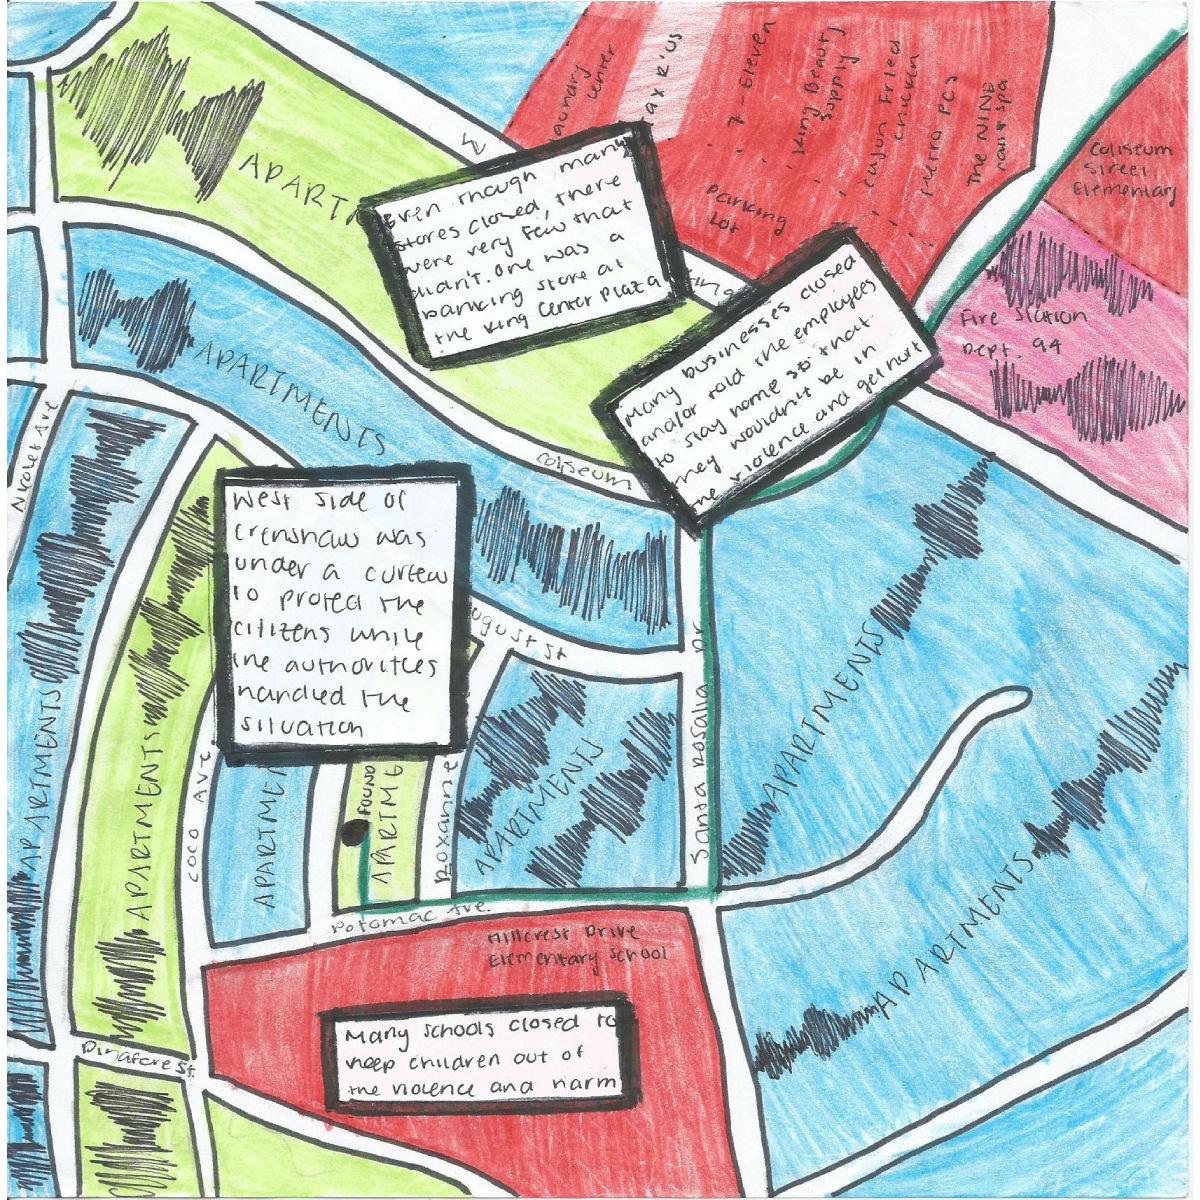 Laundry
Center
TAX R'US
7-Eleven
King Beauty
Supply
Cajun Fried
Chicken
Metro PCS
The NINE
nail spa
Parking
Lot
Coliseum
Street
Elementary
Fire Station
Dept. 94
APARTM
Even though many
stores closed, there
were very few that
didn't. One was a
banking store at
the King Center Plaza
King
Many businesses closed
and/or told the employees
to stay home so that
they wouldn't be in
the violence and get hurt
APARTMENTS
Coliseum
Nicolet Ave
West side of
Crenshaw was
under a curfew
to protect the
citizens while
the authorities
handled the
situation
August St
Santa Rosalia Dr
APARTMENTS
APARTMENTS
APARTMENTS
Coco Ave.
APARTMEN
FOUND
APARTME
Roxanne
APARTMENTS
APARTMENTS
Potomac Ave.
Hillcrest Drive
Elementary School
Many schools closed to
keep children out of
the violence and harm
Pinafore St.